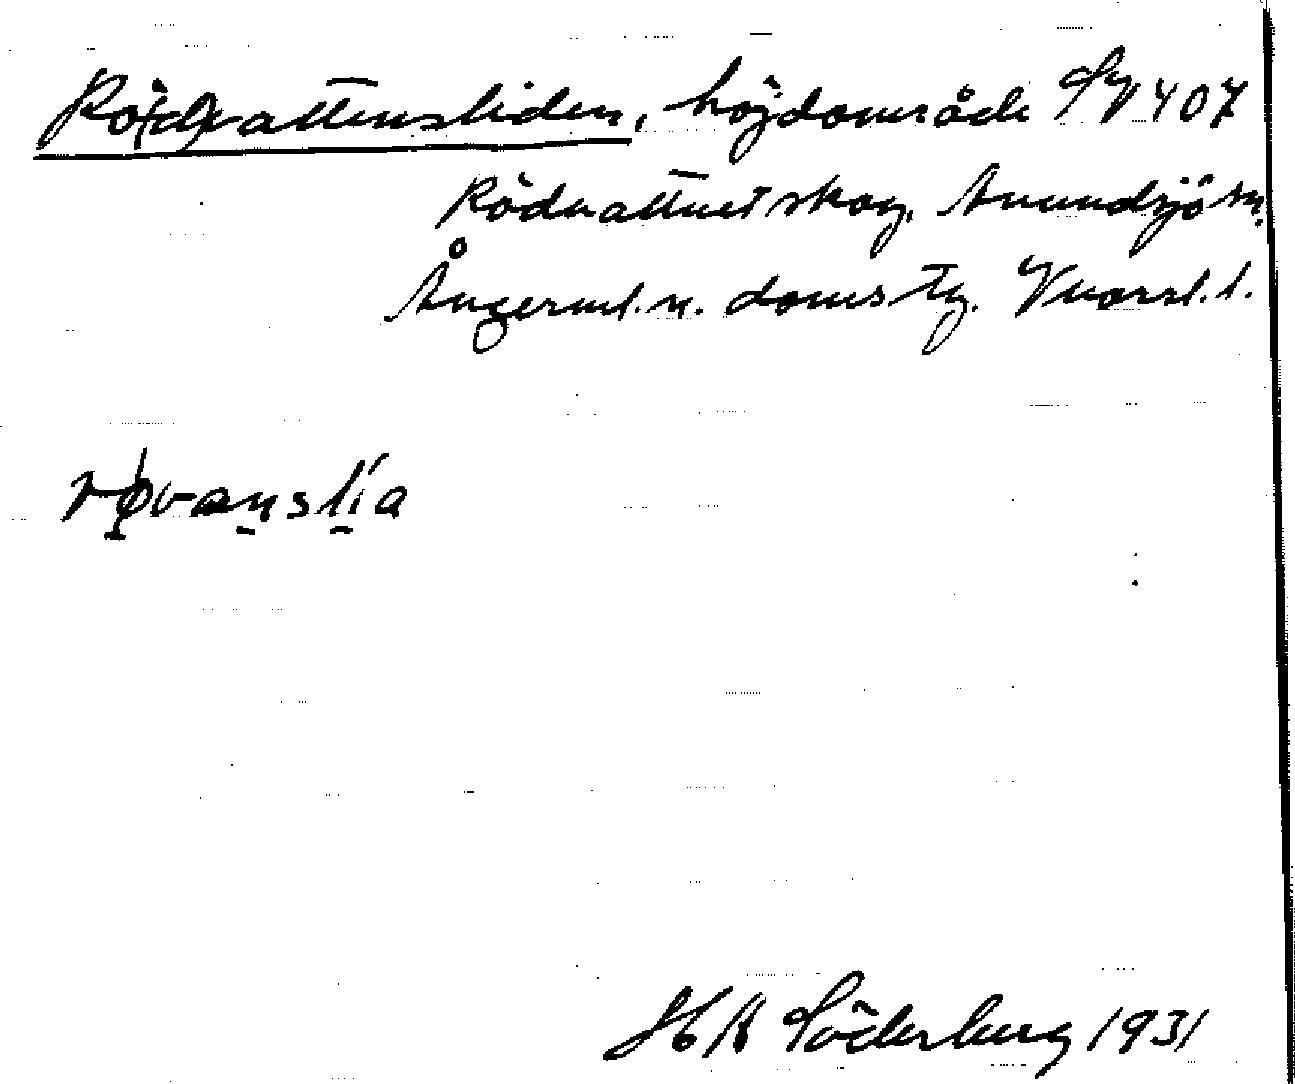 Rö(d)vattensliden, höjdområde SV 407
Rödvattnet skog, Anundsjö sn.
Ångerml. n. doms Tg. Vnorrl. l.
røvanslia
H A Söderberg 1931